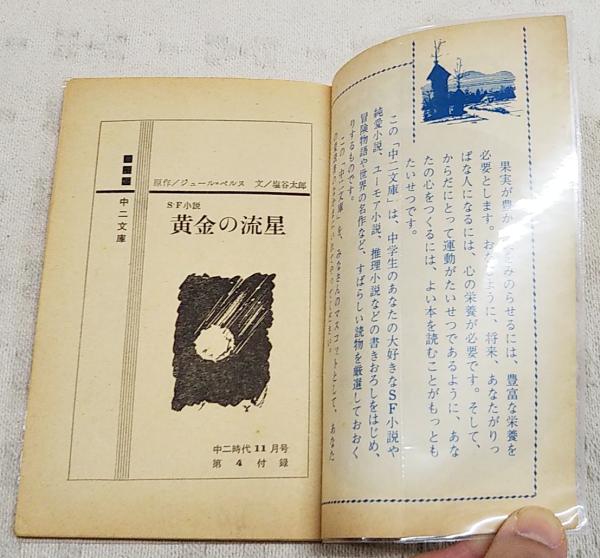 中二文庫
原作/ジュール・ベルヌ 文/塩谷太郎
S・F小説
黄金の流星
中二時代11月号
第4付録
果実が豊か みのらせるには、豊富な栄養を
必要とします。おな ように、将来、あなたがりっ
ぱな人になるには、心の栄養が必要です。そして、
からだにとって運動がたいせつであるように、あな
たの心をつくるには、よい本を読むことがもっとも
たいせつです。
この「中二文庫」は、中学生のあなたの大好きなSF小説や
純愛小説、ユーモア小説、推理小説などの書きおろしをはじめ、
冒険物語や世界の名作など、すばらしい読物を厳選しておおく
りするものです。
この「中二文庫」を、みなさんのマスコットとして、あなた